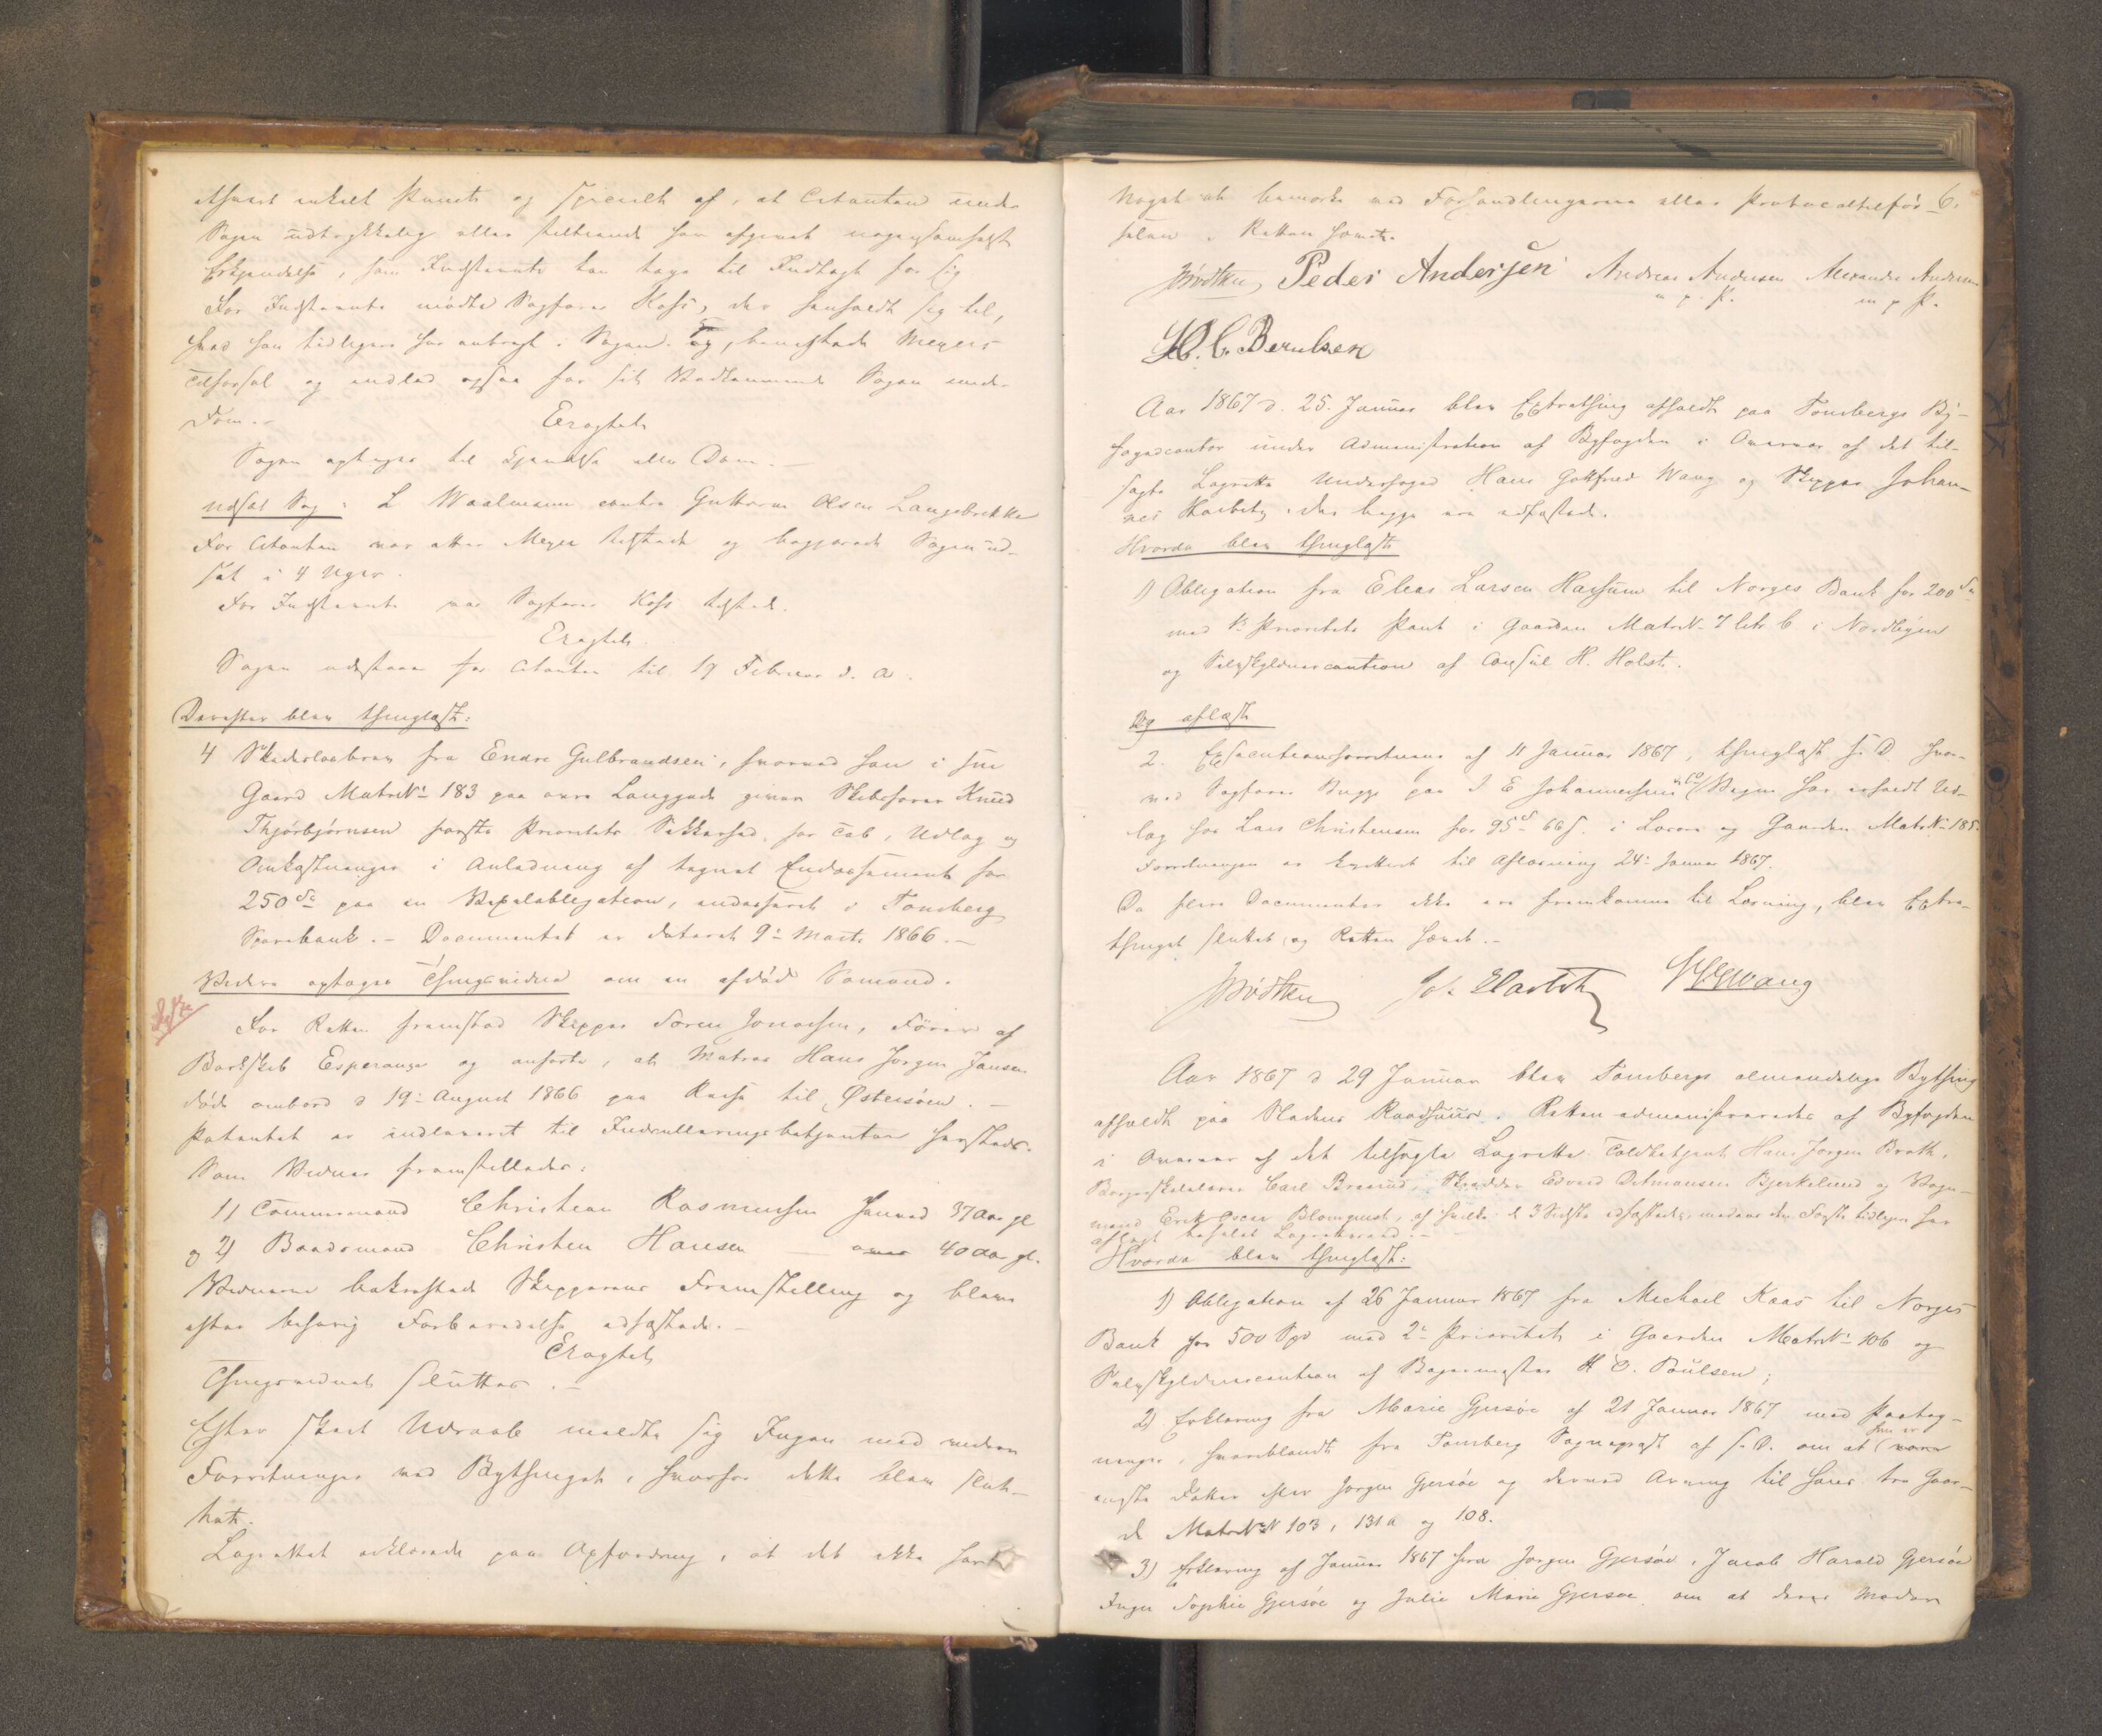 ethvert enkelt Punct og specielt af, at Citanten under
Sagen udtrykkelig eller stiltiende har afgivet nogensomhelst
Erkjendelse, som Indstevnte kan tage til Indtægt for sig
For Indstevnte mødte Sagfører Koss, der henholdt sig til,
hvad han tidligere har anbragt i Sagen og, benegtede Meyers
Tilførsel og indlod ogsaa for sit Vedkommende Sagen under
Dom.-
Eragtet
Sagen optages til Kjendelse eller Dom.-
Udsat Sag: L Waalmann contra Guttorm Olsen Langebrekke
For Citanten var atter Meyer tilstede og begjærede Sagen ud-
sat i 4 Uger.
For Indstevnte var Sagfører Koss tilstede.
Eragtet
Sagen udstaar for Citanten til 19 Februar d. A.
Derefter blev thinglæst:
4 Skadesløsbrev fra Endre Gulbrandsen, hvorved han i sin
Gaard MatrN: 183 paa øvre Langgade giver Skibsfører Knud
Thjórbjórnsen første Prioritets Sikkerhed for Tab, Udlæg og
Omkostninger i Anledning af tegnet Endossement for
250 Sp paa en Vexelobligation, endosseret i Tønsberg
Sparebank.- Documentet er dateret 9: Marts 1866.-
Videre optoges Thingsvidne om en afdød Sømand.
For Retten fremstod Skipper Søren Jonassen, Fører af
Barkskib Esperance og anførte, at Matros Hans Jørgen Jansen
døde ombord d 19: August 1866 paa Reise til Østersöen.-
Patentet er indleveret til Indrulleringsbetjenten hersteds.
Som Vidner fremstilledes:
1) Tømmermand Christian Rasmussen 37 Aar gl
og 2) Baadsmand Christen Hansen — 40 Aar gl.
Vidnerne bekræftede Skipperens Fremstilling og bleve
efter behørig Forberedelse edfæstede.-
Eragtet
Thingsvidnet sluttes.-
Efter skeet Udraab meldte sig Ingen med videre
Forretninger ved Bythinget, hvorfor dette blev slut-
tet.
Lagrettet erklærede paa Opfordring, at det ikke havde
6.
Noget at bemærke ved Forhandlingerne eller Protocoltilfør-
selen. Retten hævet.
Peder Andersen Andreas Andersen Alexander Andersen
m. p. P. m p P.
H. C. Berntsen
Aar 1867 d. 25. Januar blev Extrathing afholdt paa Tønsbergs By-
fogedcontor under Administration af Byfogden i Overvær af det til-
sagte Lagrette Underfoged Hans Gottfried Wang og Skipper Johan-
nes Harbitz, der begge ere edfæstede.
Hvorda blev thinglæst
1) Obligation fra Elias Larsen Hassum til Norges Bank for 200 Sp
med 1: Prioritets Pant i Gaarden MatrN: 7 litr b i Nordbyen
og Selvskyldnercaution af Consul H. Holst.
Og aflæst
2. Executionsforretning af 11 Januar 1867, thinglæst s. D. hvor-
ved Sagfører Bugge for J E Johannessen & Co har erholdt Ud-
læg hos Lars Christensen for 95 Sp 66 s. i Løsøre og Gaarden MatrN: 185.
Forretningen er kvitteret til Aflæsning 24: Januar 1867.
Da flere Documenter ikke ere fremkomne til Læsning, blev Extra-
thinget sluttet og Retten hævet.-
Joh. Harbitz HGWang
Aar 1867 d 29 Januar blev Tønsbergs almindelige Bything
afholdt paa Stadens Raadhuus. Retten administreredes af Byfogden
i Overvær af det tilsagte Lagrette Toldbetjent Hans Jørgen Brath,
Borgerskolelærer Carl Braarud, Skrædder Edvard Ditmansen Bjerkelund og Vogn-
mand Erik Oscar Blomquist, af hvilke de 3 Sidste edfæstedes, medens den Første tidligere har
aflagt befalet Lagrettesed.-
Hvorda blev thinglæst:
1) Obligation af 26 Januar 1867 fra Michael Kaas til Norges
Bank for 500 Spd med 2: Prioritet i Gaarden MatrN: 106 og
Selvskyldnercaution af Bagermester H O. Poulsen;
2) Erklæring fra Marie Gjersöe af 21 Januar 1867 med Paateg-
ninger, hvoriblandt fra Tønsberg Sognepræst af s. D. om at hun er
eneste Datter efter Jørgen Gjersöe og derved Arving til hans tre Gaar-
de MatrN: 103, 131a og 108.
3) Erklæring af Januar 1867 fra Jørgen Gjersöe, Jacob Harald Gjersöe
Inger Sophie Gjersöe og Julie Marie Gjersöe om at deres Moder